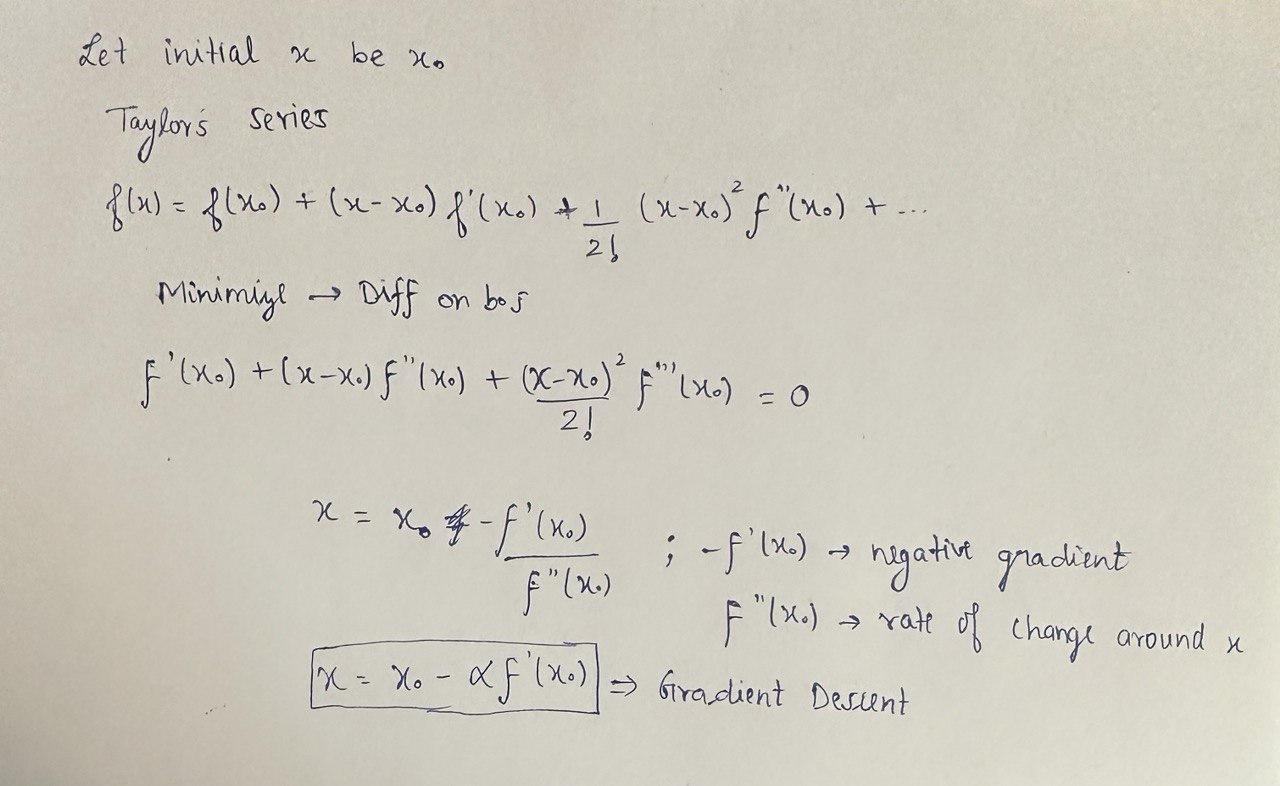 Let initial x be x₀
Taylor's series
f(x) = f(x₀) + (x-x₀) f'(x₀) + 1/2! (x-x₀)² f''(x₀) + ...
Minimize → Diff on bos
f'(x₀) + (x-x₀) f''(x₀) + (x-x₀)²/2! f'''(x₀) = 0
x = x₀ - f'(x₀)/f''(x₀) ; -f'(x₀) → negative gradient
f''(x₀) → rate of change around x
x = x₀ - αf'(x₀) ⇒ Gradient Descent